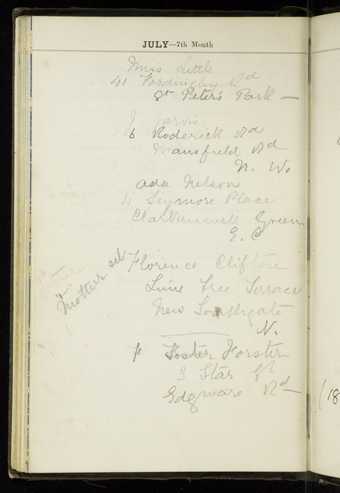 JULY—7th Month
Mrs Little
41 Fordingley Rd
St Peters Park —
J Jarvis
6 Roderick Rd
Mansfield Rd
N. W.
Ada Nelson
11 Seymore Place
Clarkenwell Green
E. C
Florence Clifton
Lime Tree Terrace
New Southgate
N.
Foster Forster
3 Star St
Edgware Rd
Mothers
(18